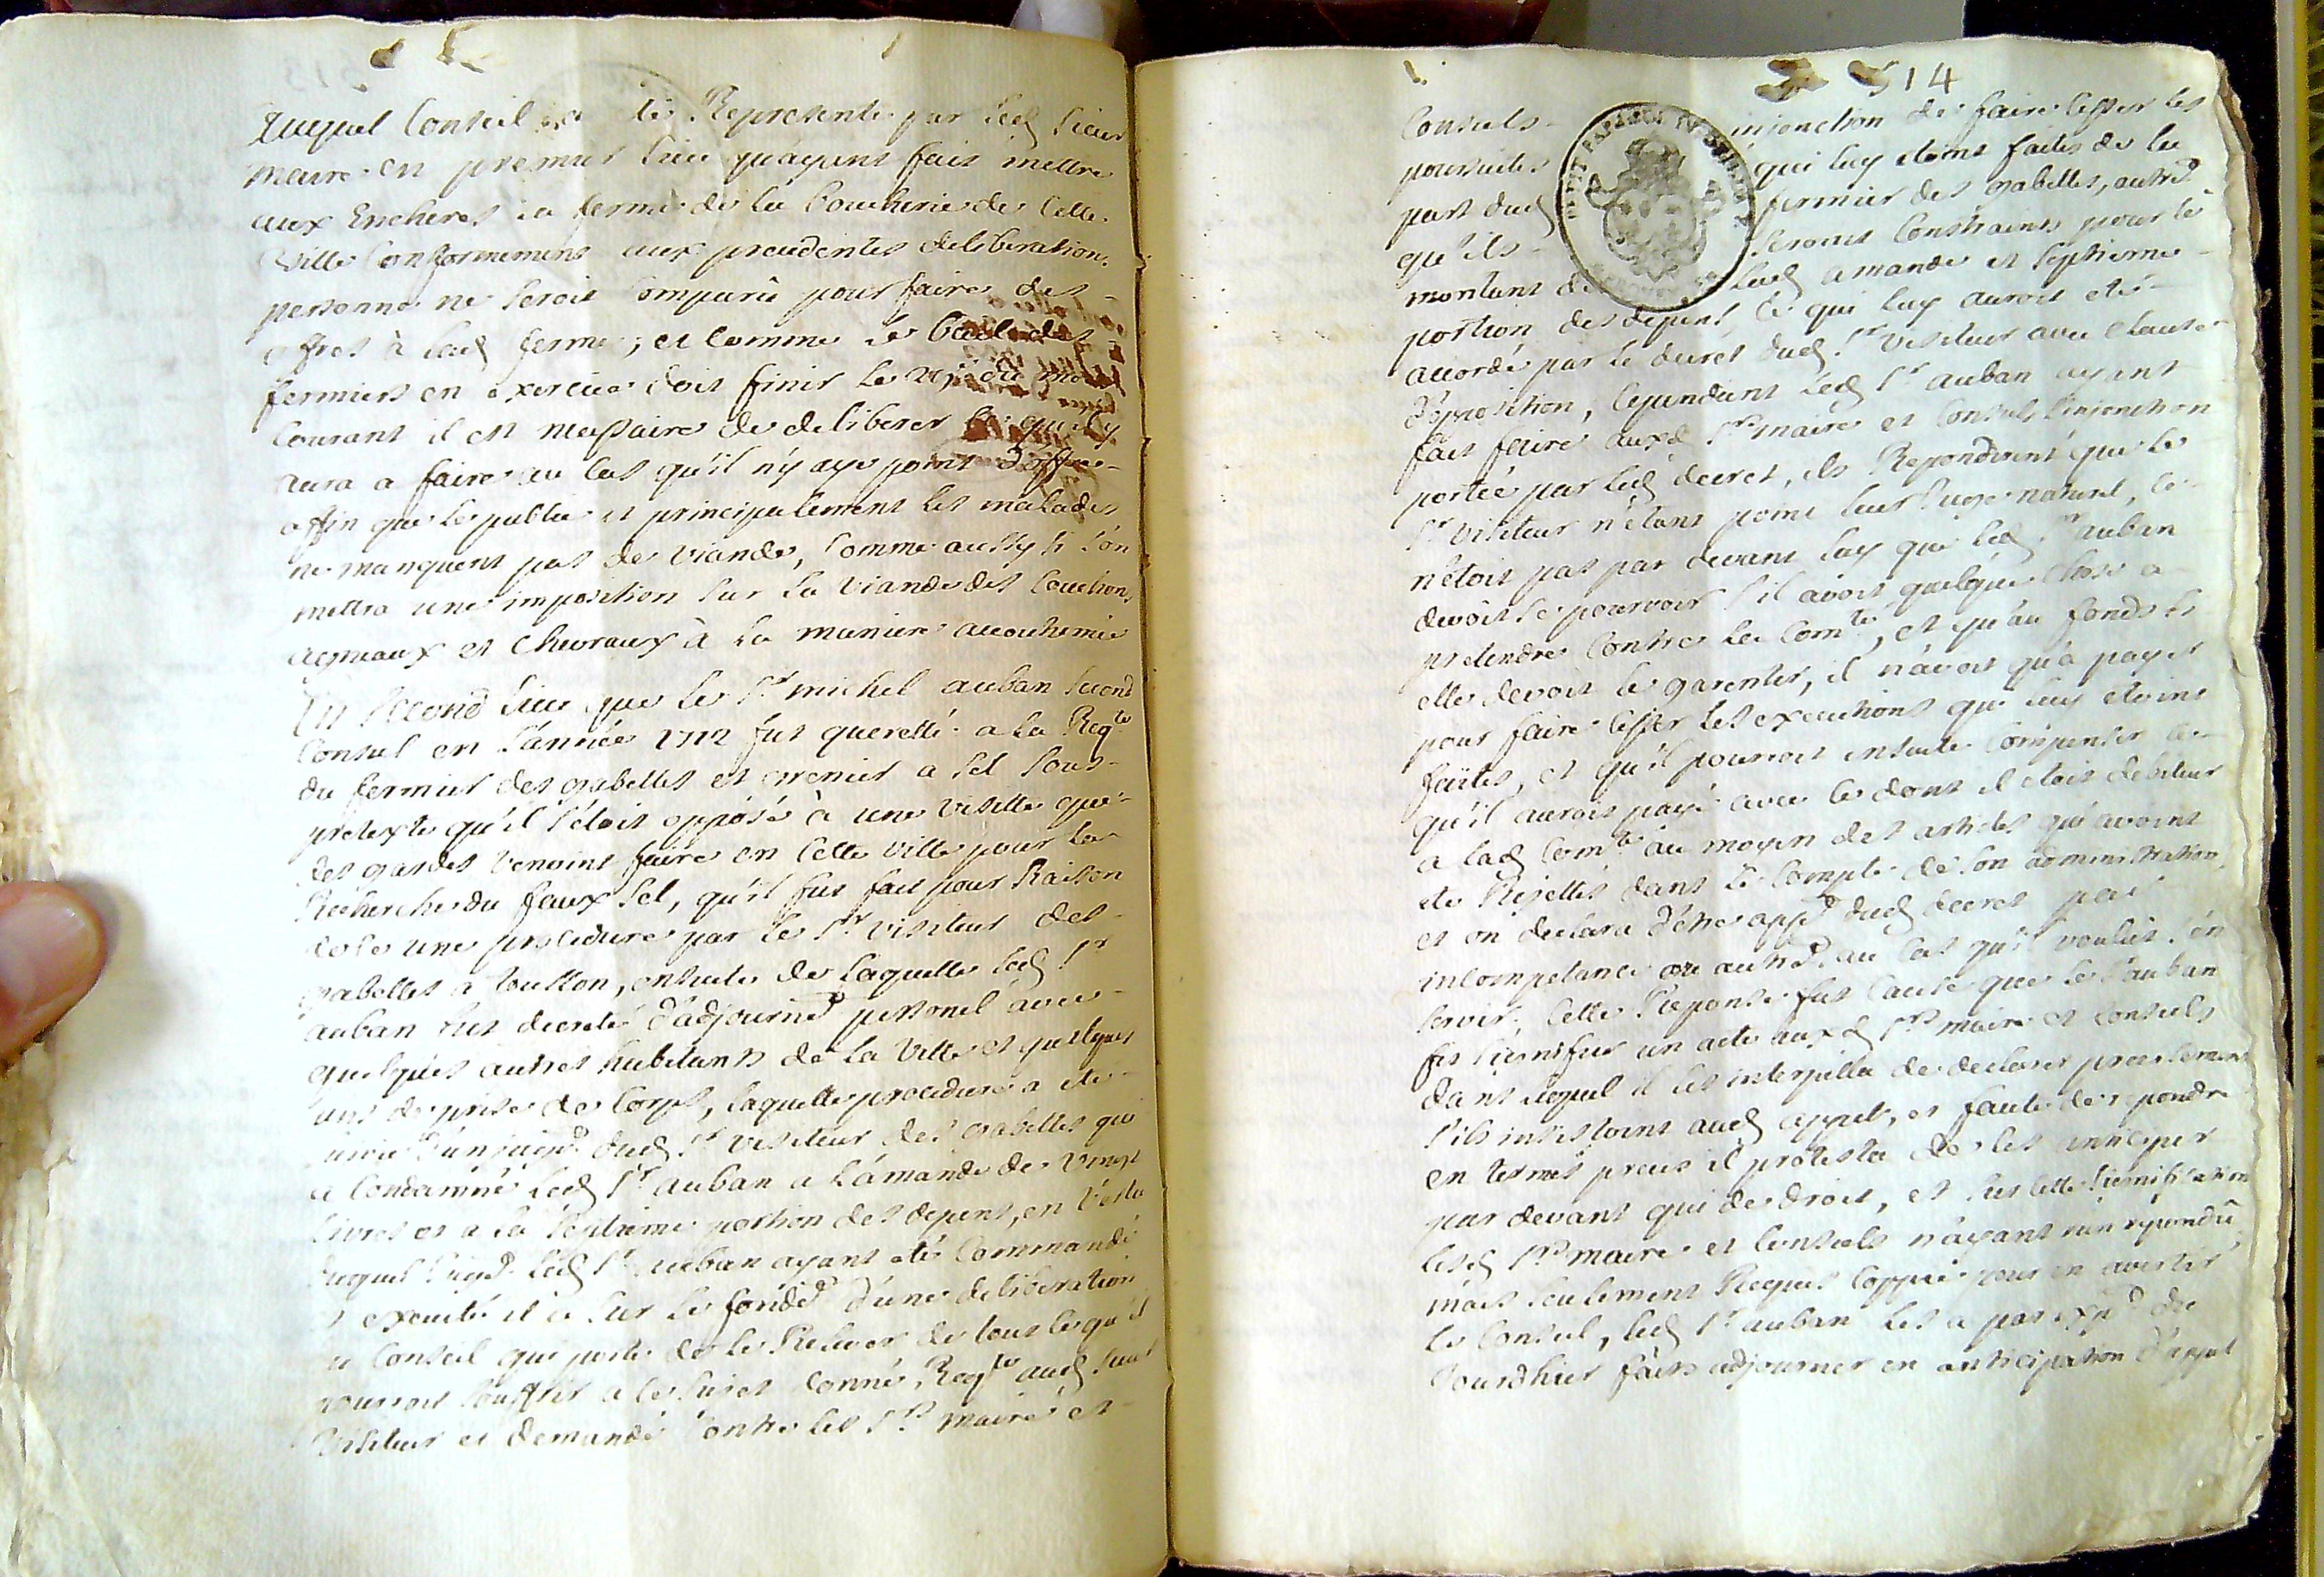 Auquel Conseil a eté Representé par led Sieur
Maire en premier lieu qu'ayant fait mettre
aux Encheres la ferme de la boucherie de Cette
Ville Conformement aux precedentes deliberations
personne ne seroit Comparû pour faire des
offres à lad ferme, et Comme le bail des
fermiers en exercice doit finir le du mois
Courant il est necessaire de deliberer ce qu'il y
aura a faire au Cas qu'il n'y aye point d'offre
affin que le public et principalement les malades
ne manquent pas de Viande, Comme aussy si l'on
mettra une imposition sur la Viande des Couchons
agneaux et Chevraux à la maniere accoutumée
En second lieu que le Sr michel auban second
Consul en l'année 1712 fut querellé a la Reqte
du fermier des gabelles et grenier a sel sous
pretexte qu'il s'étoit opposé à une Visitte que
les gardes Venoint faire en Cette Ville pour la
Recherche du faux sel, qu'il fut fait pour Raison
de ce une procedure par le Sr Visiteur des
gabelles a Toullon, ensuite de laquelle led Sr
auban fut decreté d'adjournt personel avec
quelques autres habitants de la Ville et quelques
uns de prise de Corps, laquelle procedure a eté
suivie d'un jugt dud Sr Visiteur des gabelles qui
a Condamné led Sr auban a l'amande de Vingt
livres et a la septieme portion des depens, en Vertu
duquel jugt led Sr auban ayant eté Commandé
et executé il a sur le fondt d'une deliberation
du Conseil qui porte de le Relever de tout ce qu'il
pourroit souffrir a ce sujet donné Reqte aud sieur
Visiteur et demandé Contre les Srs Maire et
514
Consuls injonction de faire Cesser les
poursuites qui luy etoint faites de la
part dud fermier des gabelles, autrt
qu'ils seroint Constraints pour le
montant de lad amande et septieme
portion des depens, Ce qui luy auroit eté
accordé par le decret dud Sr Visiteur avec Clause
d'opposition, Cependant led Sr auban ayant
fait faire auxd Srs maire et Consuls l'injonction
portée par led decret, ils Repondirent que le
Sr Visiteur n'étant point leur Juge naturel, Ce
n'étoit pas par devant luy que led Sr auban
devoit se pourvoir s'il avoit quelque Chose a
pretendre Contre la Comté, et qu'au fonds si
elle devoit le garentir, il n'avoit qu'a payer
pour faire Cesser les executions qui luy etoint
faites, et qu'il pourroit ensuite Compenser Ce
qu'il auroit payé avec Ce dont il etoit debiteur
a lad Comté au moyen des articles qui avoint
eté Rejettés dans le Compte de son administration
et on declara d'étre appt dud decret par
incompetance ou autrt au Cas qu'il voulut s'en
servir, Cette Reponse fut Cause que le Sr auban
fit signifier un acte auxd Srs maire et Consuls
dans lequel il les interpella de declarer precisement
s'ils insistoint aud appel, et faute de repondre
en termes precis il protesta de les anticiper
par devant qui de droit, et sur cette signification
lesd Srs maire et Consuls n'ayant rien repondû
mais seulement Requis Coppie pour en avertir
le Conseil, led Sr auban les a par expt du
Jourdhier faits adjourner en anticipation d'appel